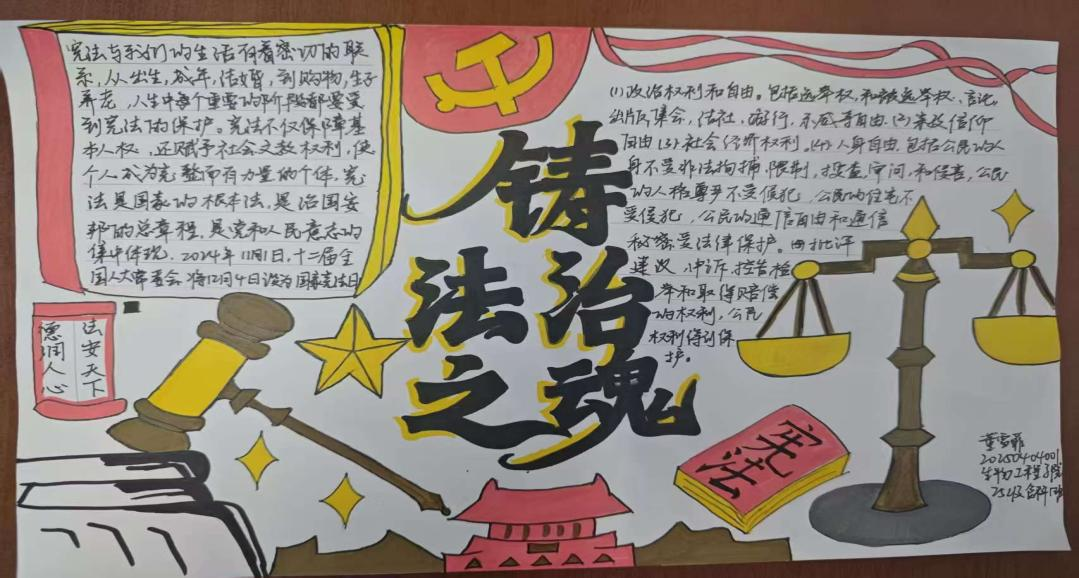 宪法与我们的生活有着密切的联
系，从出生，成年，结婚，到购物，生子
养老，人生中每个重要的阶段都要受
到宪法的保护。宪法不仅保障基
本人权，还赋予社会文教权利，使
个人成为完整而有力量的个体，宪
法是国家的根本法，是治国安
邦的总章程，是党和人民意志的
集中体现，2024年11月1日，十二届全
国人大常委会将12月4日设为国家宪法日
法安天下
德润人心
铸
法治
之魂
(1)政治权利和自由，包括选举权，和被选举权、言论，
出版，集会，结社，游行，示威等自由，(2)宗教信仰
自由(3)社会经济权利。(4)人身自由，包括公民的人
身不受非法拘捕，限制，搜查，审问，和侵害，公民
的人格尊严不受侵犯，公民的住宅不
受侵犯，公民的通信自由和通信
秘密受法律保护。四批评
建议，申诉，控告检
举和取得赔偿
的权利，公民
权利得到保
护。
宪法
20250404001
生物工程学院